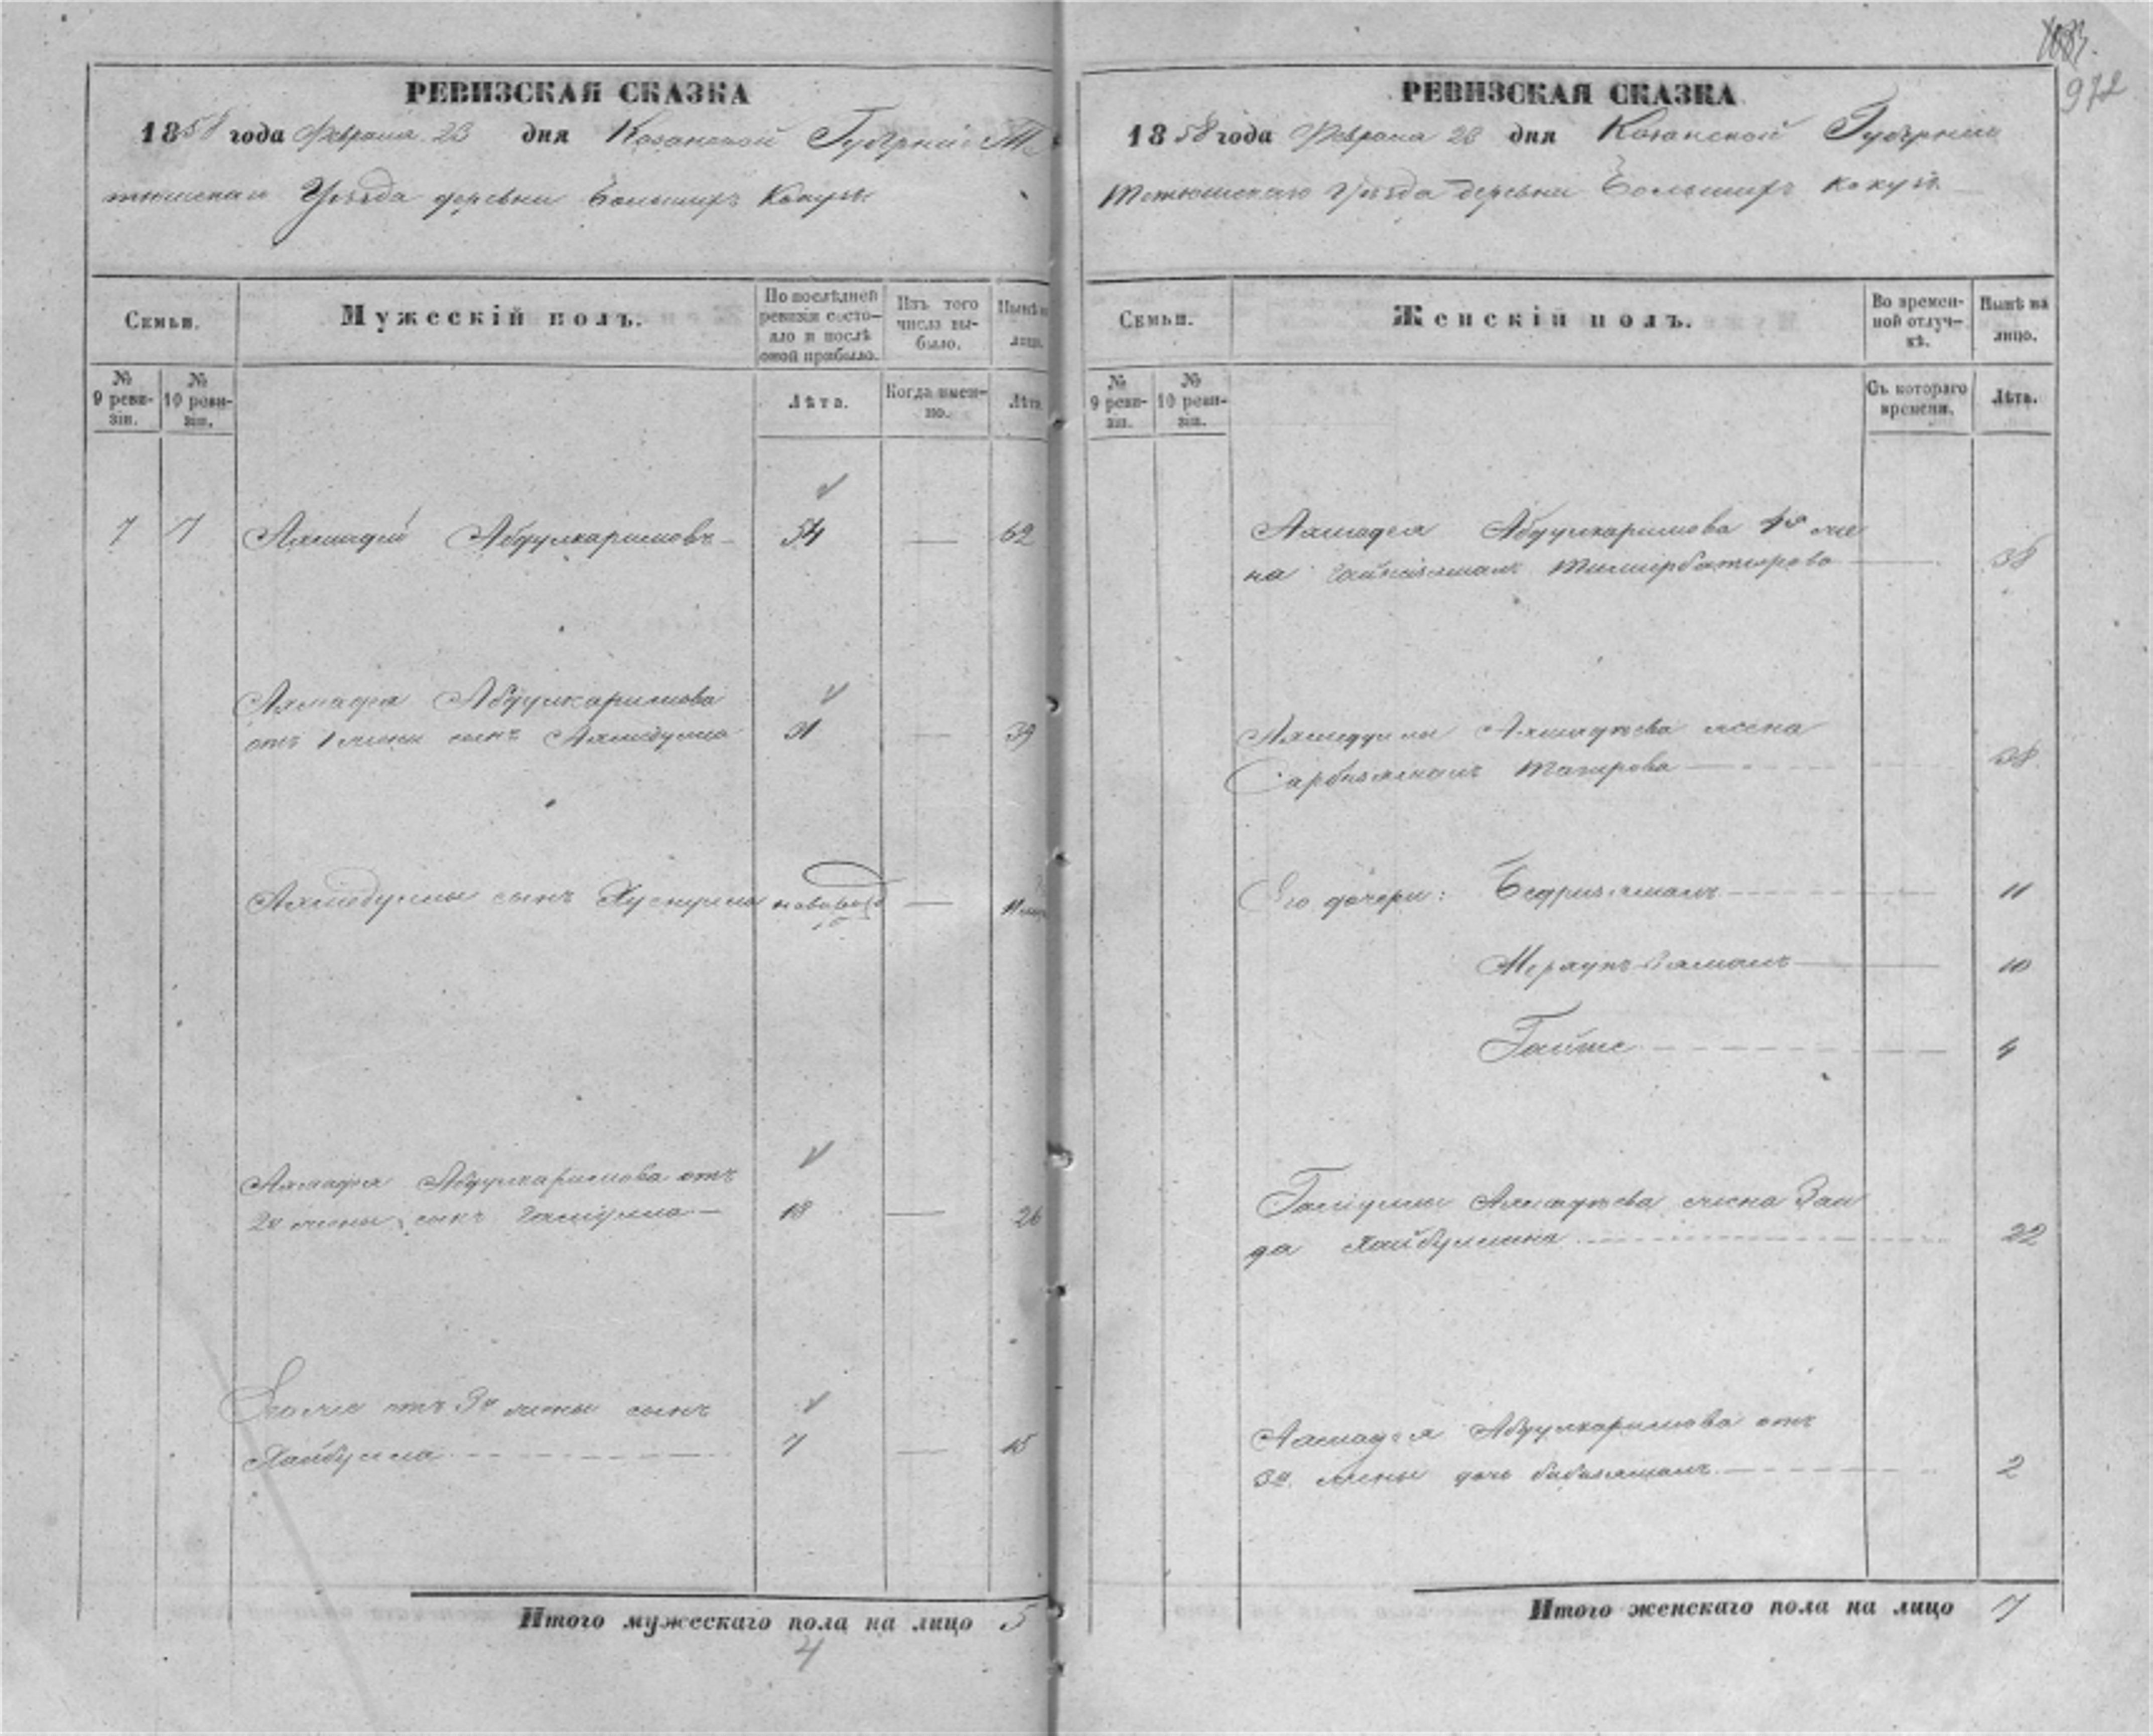 972
РЕВИЗСКАЯ СКАЗКА
1858 года Февраля 23 дня Казанской Губернiи Те
тюшскаго Уѣзда деревни Большихъ Кокузъ
Семьи.
Мужескiй полъ.
По послѣдней ревизiи состо-
яло и послѣ оной прибыло.
Изъ того числа вы-
было.
Нынѣ на лицо.
№ 9 реви-
зiи.
№ 10 реви-
зiи.
Лѣта.
Когда имен-
но.
Лѣта.
7 7 Ахмадей Абдулкаримовъ 54 — 62
Ахмадея Абдулкаримова
отъ 1 жены сынъ Ахмедулла 31 — 39
Ахмедуллы сынъ Хуснулла — 11
Ахмадея Абдулкаримова отъ
2й жены сынъ 18 — 26
Его же отъ 3й жены сынъ
Хайбулла 7 — 15
Итого мужескаго пола на лицо 5
4
РЕВИЗСКАЯ СКАЗКА
1858 года Февраля 23 дня Казанской Губернiи
Тетюшскаго Уѣзда деревни Большихъ Кокузъ
Семьи.
Женскiй полъ.
Во времен-
ной отлуч-
кѣ.
Нынѣ на
лицо.
№ 9 реви-
зiи.
№ 10 реви-
зiи.
Съ котораго
времени.
Лѣта.
Ахмадея Абдулкаримова же
на Тимирбатырова — 38
Ахмедуллы Ахмадѣева жена
Тагирова — 38
Его дочери: Бедризямалъ — 11
— 10
Гайше — 4
Ахмадѣева жена Заи
да Хайбуллина 22
Ахмадея Абдулкаримова отъ
3й жены дочь — 2
Итого женскаго пола на лицо 7